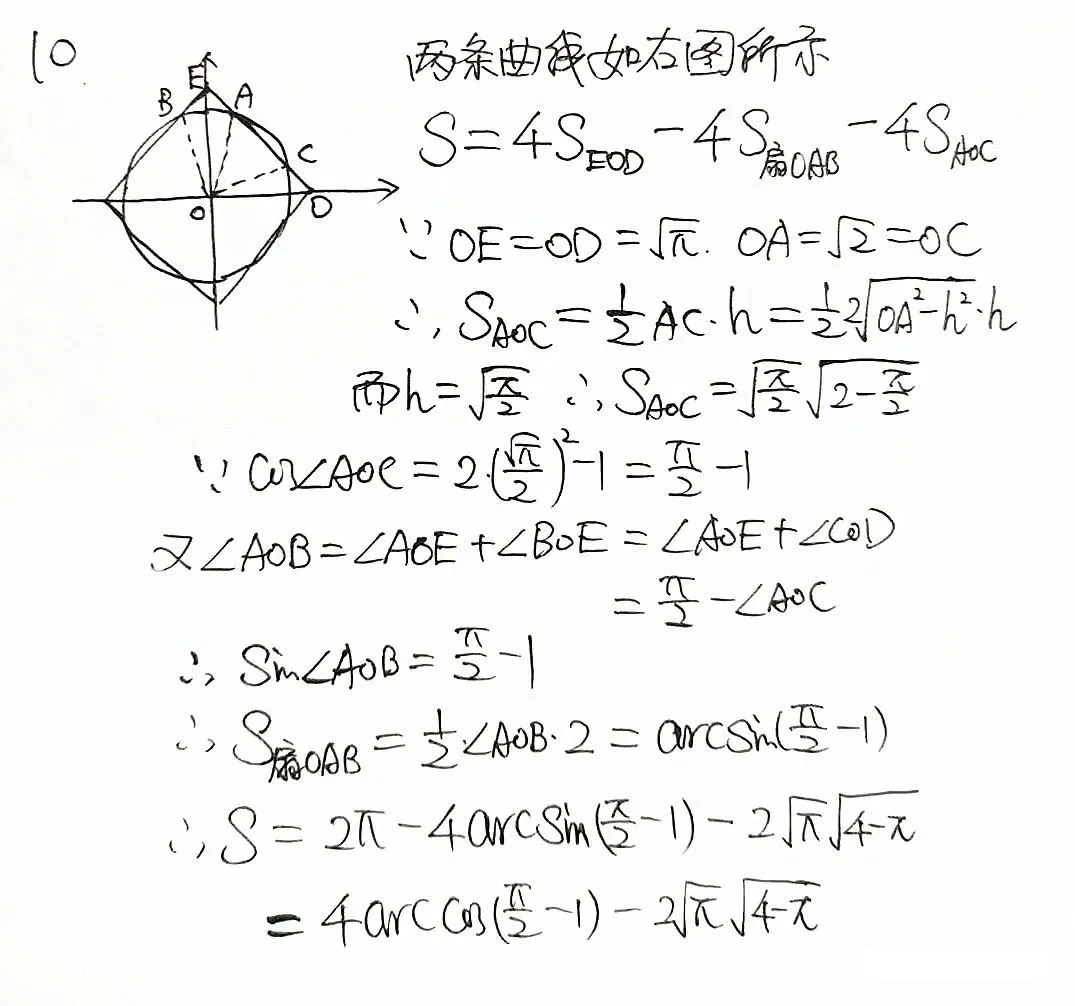 10
E
B A
C
O D
两条曲线如右图所示
S=4S_EOD-4S_扇OAB-4S_AOC
∵OE=OD=√π. OA=√2=OC
∴, S_AOC=1/2 AC·h=1/2 2√(OA²-h²)·h
而h=√(π/2) ∴, S_AOC=√(π/2)√(2-π/2)
∵ cos∠AOC=2·(√π/2)²-1=π/2-1
又∠AOB=∠AOE+∠BOE=∠AOE+∠COD
=π/2-∠AOC
∴, Sin∠AOB=π/2-1
∴, S_扇OAB=1/2·∠AOB·2=arcsin(π/2-1)
∴, S=2π-4arcSin(π/2-1)-2√π√(4-π)
=4arccos(π/2-1)-2√π√(4-π)